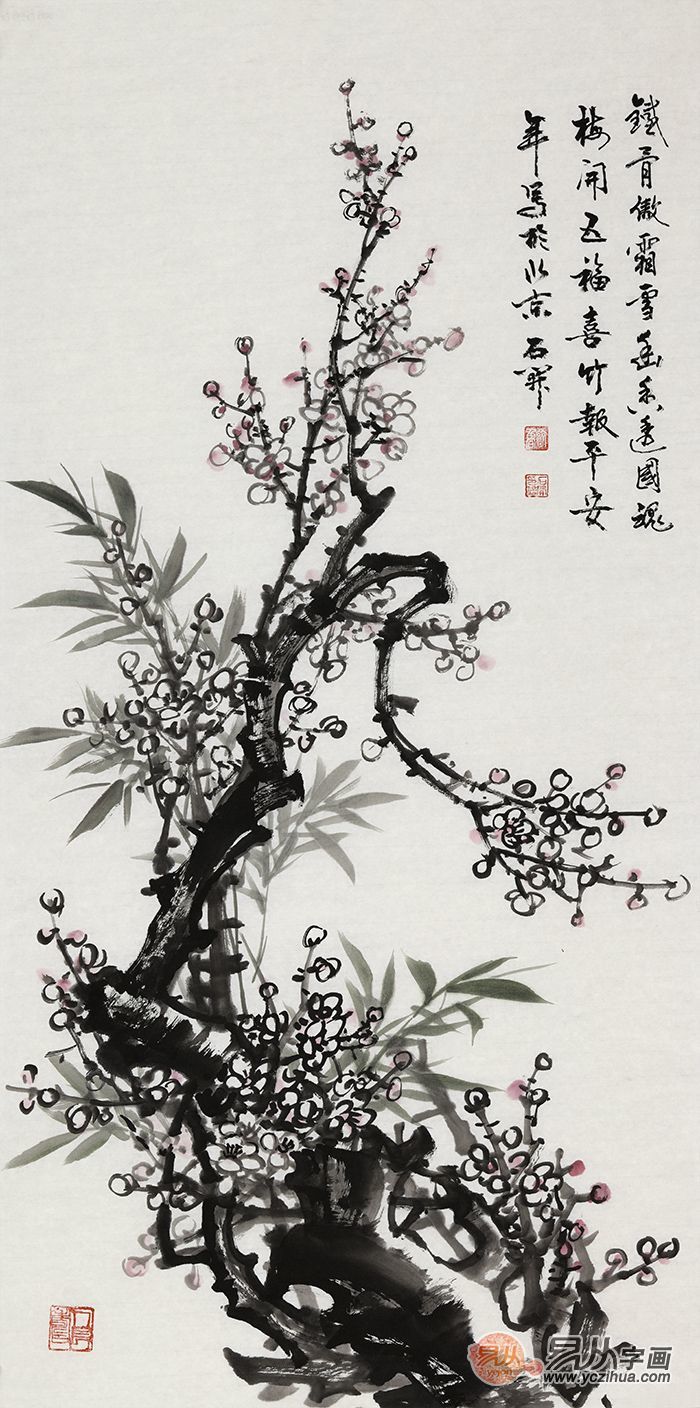 鐵骨傲霜雪幽香透國魂
梅開五福喜竹報平安
年寫於北京 石
易从
易从字画
www.yczihua.com